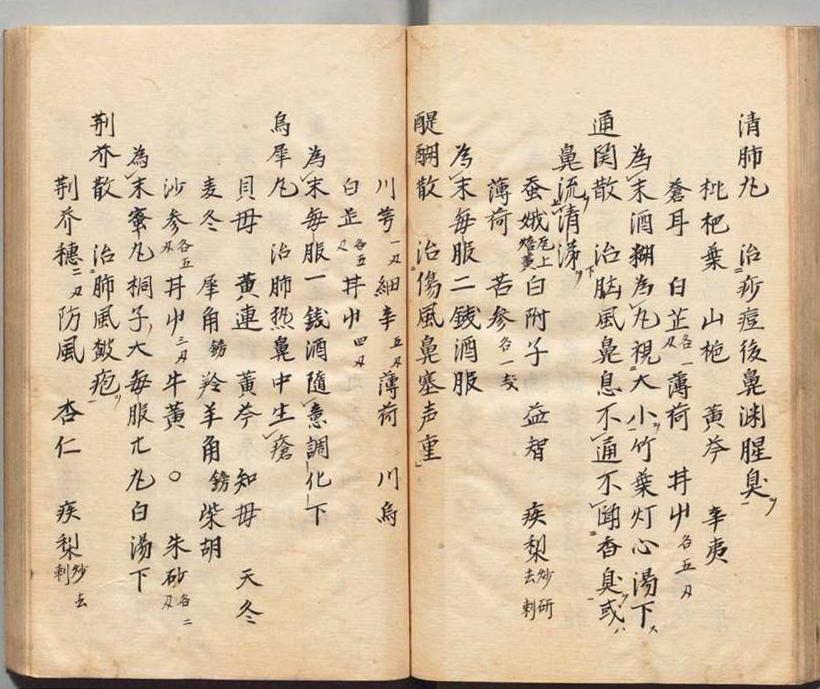 清肺丸 治痧痘後鼻渊腥臭
枇杷葉 山栀 黄芩 辛夷
蒼耳 白芷各一刄 薄荷 甘艸各五刄
為末酒糊為丸視大小竹葉灯心湯下
通関散 治脳風鼻息不通不聞香臭或
鼻流清涕
蚕蛾 白附子 益智 疾梨炒研去刺
薄荷 苦参
為末毎服二銭酒服
醍醐散 治傷風鼻塞声重
川芎一刄 細辛五刄 薄荷 川烏
白芷各五刄 甘艸四刄
為末毎服一銭酒隨意調化下
烏犀丸 治肺热鼻中生瘡
貝母 黄連 黄芩 知母 天冬
麦冬 犀角鎊 羚羊角鎊 柴胡
沙参各五刄 甘艸三刄 牛黄 〇 朱砂各二刄
為末蜜丸桐子大毎服尢丸白湯下
荆芥散 治肺風皶疱
荆芥穗二刄 防風 杏仁 疾梨炒去刺